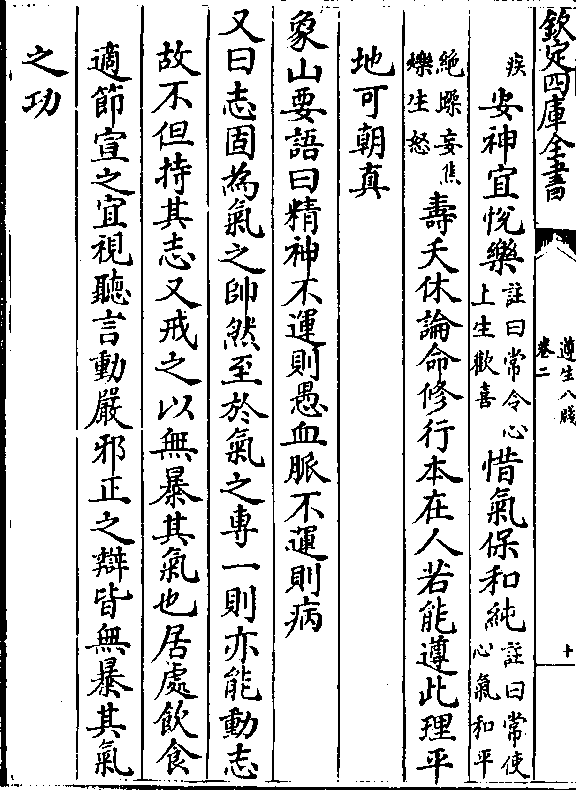 欽定四庫全書
遵生八牋
卷二
十
疾安神宜悅樂註曰常令心上生歡喜惜氣保和純註曰常使心氣和平
絶躁妄焦爍生怒壽夭休論命修行本在人若能遵此理平
地可朝真
象山要語曰精神不運則愚血脈不運則病
又曰志固為氣之帥然至於氣之專一則亦能動志
故不但持其志又戒之以無暴其氣也居處飲食
適節宣之宜視聽言動嚴邪正之辯皆無暴其氣
之功